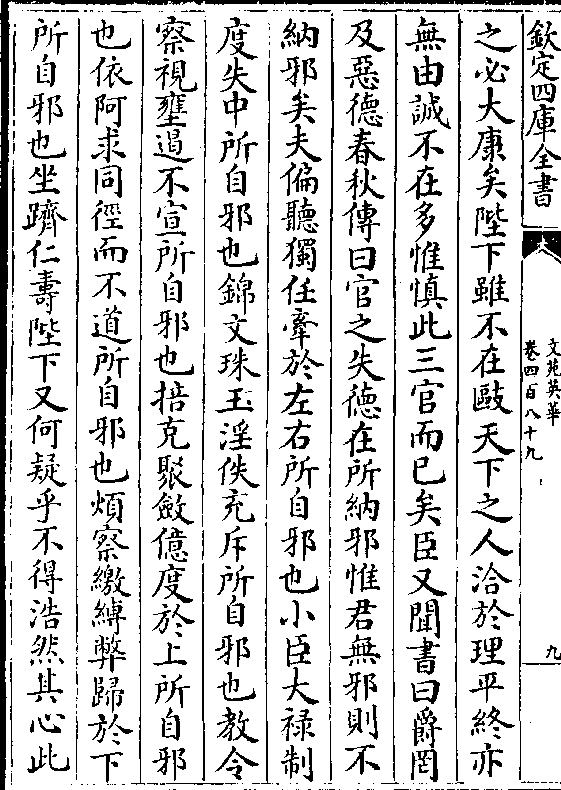 欽定四庫全書
文苑英華
卷四百八十九
九
之必大康矣陛下雖不在毆天下之人洽於理平終亦
無由誠不在多惟慎此三官而已矣臣又聞書曰爵罔
及惡德春秋傳曰官之失德在所納邪惟君無邪則不
納邪矣夫偏聽獨任牽於左右所自邪也小臣大祿制
度失中所自邪也錦文珠玉淫佚充斥所自邪也教令
察視壅遏不宣所自邪也掊克聚斂億度於上所自邪
也依阿求同徑而不道所自邪也煩察繳縛弊歸於下
所自邪也坐躋仁壽陛下又何疑乎不得浩然其心此